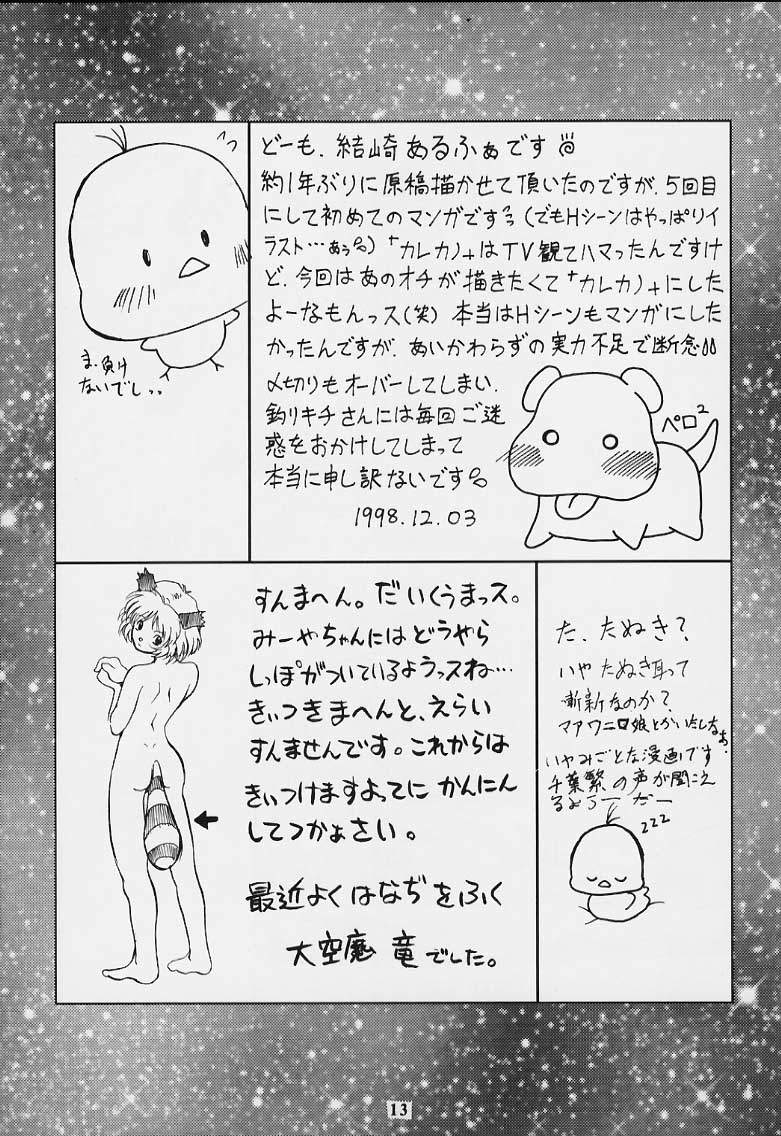 どーも、結崎あるふぁです
約1年ぶりに原稿描かせて頂いたのですが、5回目
にして初めてのマンガです（でもHシーンはやっぱりイ
ラスト…あう）「カレカノ」はTV観てハマったんですけ
ど、今回はあのオチが描きたくて「カレカノ」にした
よーなもんっス(笑) 本当はHシーンもマンガにした
かったんですが、あいかわらずの実力不足で断念
〆切りもオーバーしてしまい、
釣りキチさんには毎回ご迷
惑をおかけしてしまって
本当に申し訳ないです
1998.12.03
ま、負け
ないでし
ペロ2
すんまへん。だいくうまっス。
みーやちゃんにはどうやら
しっぽがついているようっスね…
きぃつきまへんと、えらい
すんませんです。これからは
きぃつけますよってに かんにん
してつかぁさい。
最近よくはなぢをふく
大空魔 竜でした。
た、たぬき?
いや たぬき耳って
斬新なのか?
マアワニ口娘とかいたしなぁ。
いやみごとな漫画です
千葉繁の声が聞こえ
るよろーだー
zzz
13